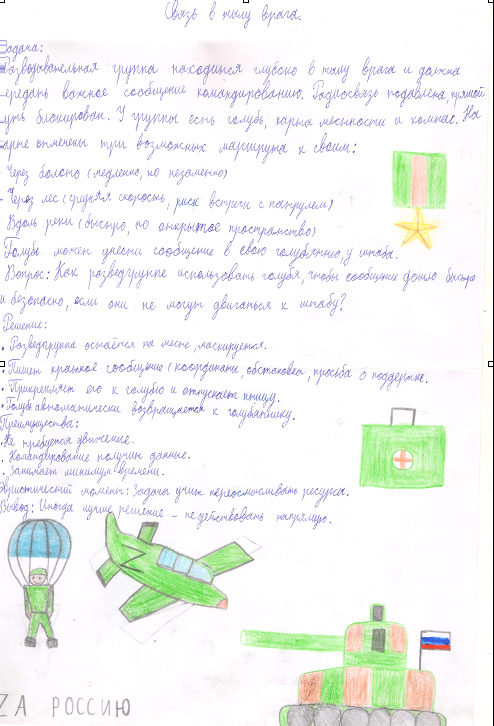 Связь в тылу врага.
Задача:
Разведывательная группа находится глубоко в тылу врага и должна
передать важное сообщение командованию. Радиосвязь подавлена, прямой
путь блокирован. У группы есть голубь, карта местности и компас. На
карте отмечены три возможных маршрута к своим:
Через болото (медленно, но незаметно)
- Через лес (средняя скорость, риск встречи с патрулем)
Вдоль реки (быстро, но открытое пространство)
Голубь может донести сообщение в свою голубятню у штаба.
Вопрос: Как разведгруппе использовать голубя, чтобы сообщение дошло быстро
и безопасно, если они не могут двигаться к штабу?
Решение:
• Разведгруппа остаётся на месте, маскируется.
• Пишет краткое сообщение (координаты, обстановка, просьба о поддержке.
• Прикрепляет его к голубю и отпускает птицу.
• Голубь автоматически возвращается к голубятнику.
Преимущества:
• Не требуется движение.
. Командирование получит данные.
. Занимает минимум времени.
Эвристический момент: Задача учит переосмысливать ресурсы.
Вывод: Иногда лучшее решение - не действовать напрямую.
ZА РОССИЮ